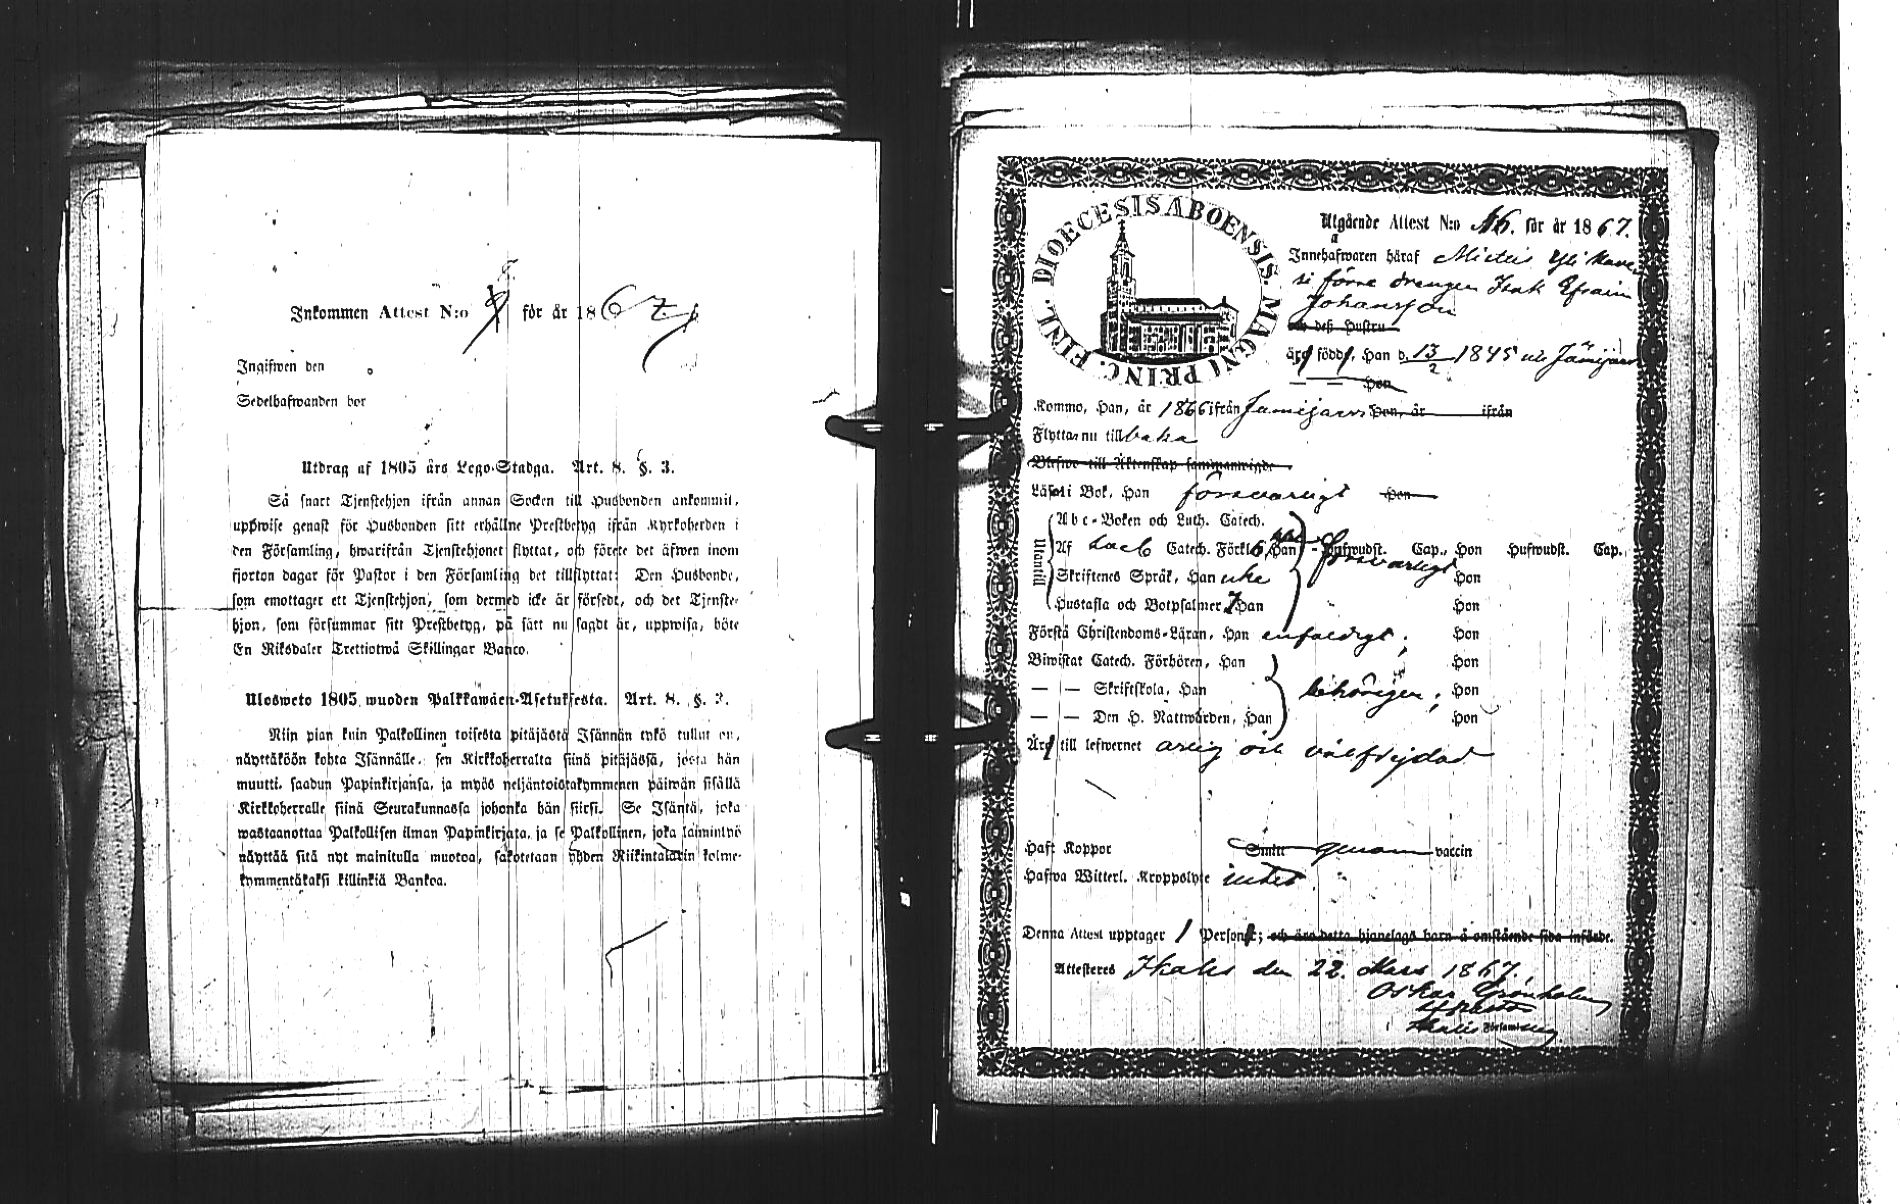 Inkommen Attest N:o för år 1867
Ingifwen den
Sedelhafwanden bor
Utdrag af 1805 års Lego-Stadga. Art. 8. §. 3.
Så snart Tjenstehjon ifrån annan Socken till Husbonden ankommit,
uppwise genast för Husbonden sitt erhållne Prestbetyg ifrån Kyrkoherden i
den Församling, hwarifrån Tjenstehjonet flyttat, och förete det äfwen inom
fjorton dagar för Pastor i den Församling det tillflyttat: Den Husbonde,
som emottager ett Tjenstehjon, som dermed icke är försedt, och det Tjenste-
hjon, som försummar sitt Prestbetyg, på sätt nu sagdt är, uppwisa, böte
En Riksdaler Trettiotwå Skillingar Banco.
Ulosweto 1805 wuoden Palkkawäen-Asetuksesta. Art. 8. §. 3.
Niin pian kuin Palkollinen toisesta pitäjästä Isännän tykö tullut on,
näyttäköön kohta Isännälle, sen Kirkkoherralta siinä pitäjässä, josta hän
muutti, saadun Papinkirjansa, ja myös neljäntoistakymmenen päiwän sisällä
Kirkkoherralle siinä Seurakunnassa johonka hän siirsi. Se Isäntä, joka
wastaanottaa Palkollisen ilman Papinkirjata, ja se Palkollinen, joka laiminlyö
näyttää sitä nyt mainitulla muotoa, sakotetaan yhden Riikintalarin kolme-
kymmentäkaksi killinkiä Bankoa.
DIOECESIS ABOENSIS. MAGNI PRINC. FINL.
Utgående Attest N:o 16. för år 1867.
Innehafwaren häraf Mieties Yli Kave-
si förre drengen Isak Efraim
Johansson
och deß Hustru
äro födde, Han d. 13/2 1845 uti Jämijärvi
— — Hon
Kommo, Han, år 1866 ifrån Jämijärvi Hon, år ifrån
Flyttar nu tillbaka
Blefwo till Äktenskap sammanwigde
Läsa i Bok, Han försvarligt Hon
Utantill
Abc-Boken och Luth. Catech.
Af Catech. Förkl. Han Hufwudst. Cap., Hon Hufwudst. Cap.
försvarligt
Skriftenes Språk, Han icke Hon
Hustafla och Botpsalmer Han Hon
Förstå Christendoms-Läran, Han enfaldigt; Hon
Biwistat Catech. Förhören, Han Hon
— — Skriftskola, Han behörigen; Hon
— — Den H. Nattwarden, Han Hon
Äro till lefwernet ärlig och välfrejdad
Haft Koppor Smitt genom vaccin
Hafwa Witterl. Kroppslyte intet.
Denna Attest upptager 1 Person; och äro detta hjonelags barn å omstående sida införde.
Attesteres Ikalis den 22. Mars 1867.
Oskar Grönholm
Ikalis Församling